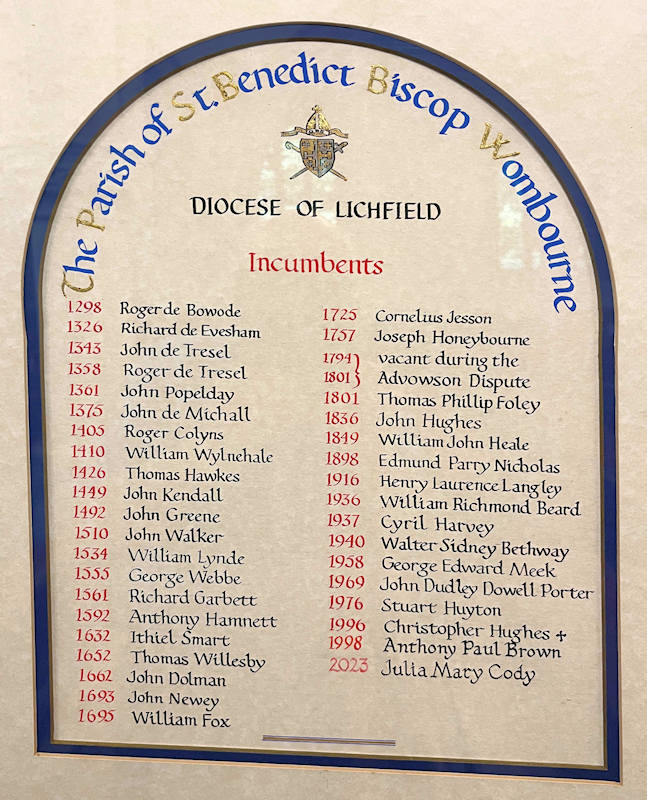 The Parish of St. Benedict Biscop Wombourne
DIOCESE OF LICHFIELD
Incumbents
1298 Roger de Bowode
1326 Richard de Evesham
1343 John de Tresel
1358 Roger de Tresel
1361 John Popelday
1375 John de Michall
1405 Roger Colyns
1410 William Wylnehale
1426 Thomas Hawkes
1449 John Kendall
1492 John Greene
1510 John Walker
1534 William Lynde
1555 George Webbe
1561 Richard Garbett
1592 Anthony Hamnett
1632 Ithiel Smart
1652 Thomas Willesby
1662 John Dolman
1693 John Newey
1695 William Fox
1725 Cornelius Jesson
1757 Joseph Honeybourne
1794} vacant during the
1801} Advowson Dispute
1801 Thomas Phillip Foley
1836 John Hughes
1849 William John Heale
1898 Edmund Parry Nicholas
1916 Henry Laurence Langley
1936 William Richmond Beard
1937 Cyril Harvey
1940 Walter Sidney Bethway
1958 George Edward Meek
1969 John Dudley Dowell Porter
1976 Stuart Huyton
1996 Christopher Hughes +
1998 Anthony Paul Brown
2023 Julia Mary Cody